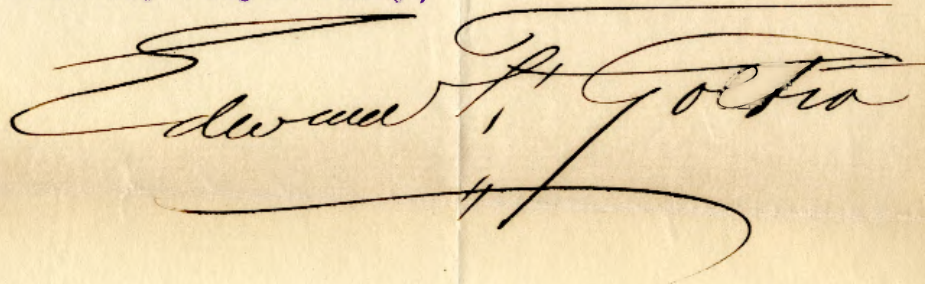 Edward F. Goltra